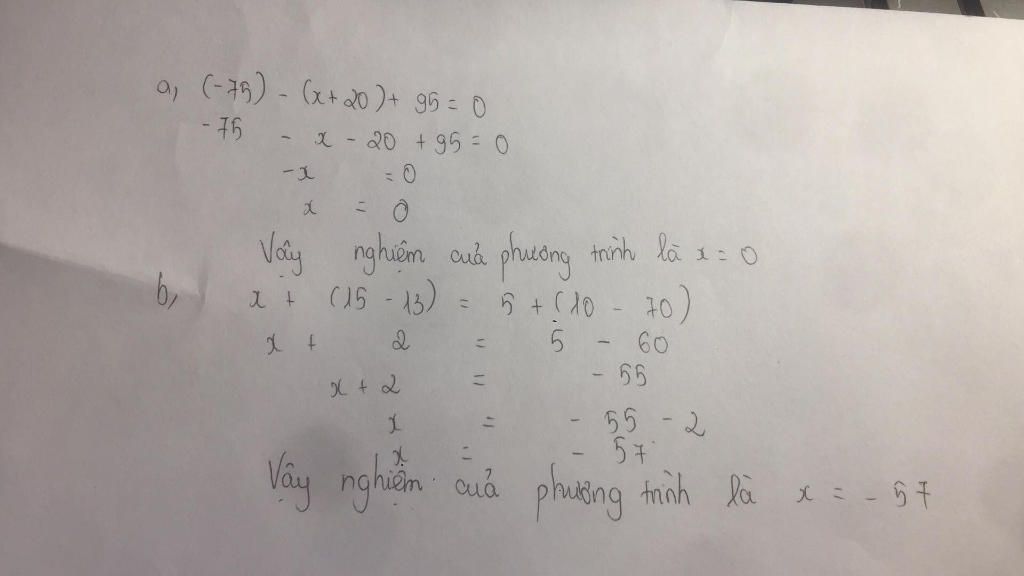 a, (-75) - (x+20)+ 95 = 0
-75 - x - 20 + 95 = 0
-x = 0
x = 0
Vậy nghiệm cuả phương trình là x = 0
b, x + (15 - 13) = 5 + (10 - 70)
x + 2 = 5 - 60
x + 2 = - 55
x = - 55 - 2
x = - 57
Vậy nghiệm cuả phương trình là x = - 57